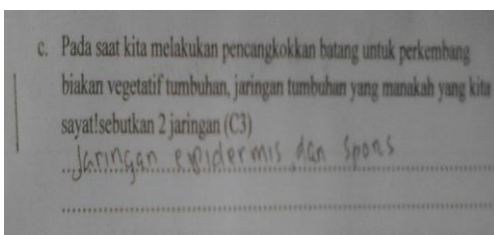 c. Pada saat kita melakukan pencangkokkan batang untuk perkembang
biakan vegetatif tumbuhan, jaringan tumbuhan yang manakah yang kita
sayat!sebutkan 2 jaringan (C3)
Jaringan epidermis dan spons